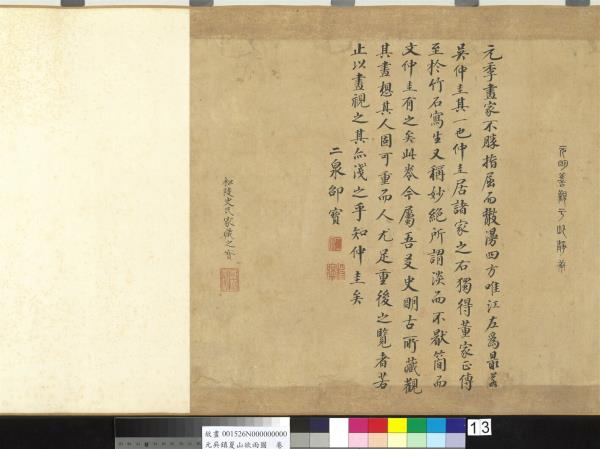 元季畫家不勝指屈而散漫四方唯江左為最若
吳仲圭其一也仲圭居諸家之右獨得董家正傳
至於竹石寫生又稱妙絕所謂淡而不厭簡而
文仲圭有之矣此卷今屬吾友史明古所藏觀
其畫想其人固可重而人尤足重後之覽者若
止以畫視之其亦淺之乎知仲圭矣
二泉邵寶
松陵史氏家藏之寶
故畫 001526N000000000
元吳鎮夏山欲雨圖 卷
13